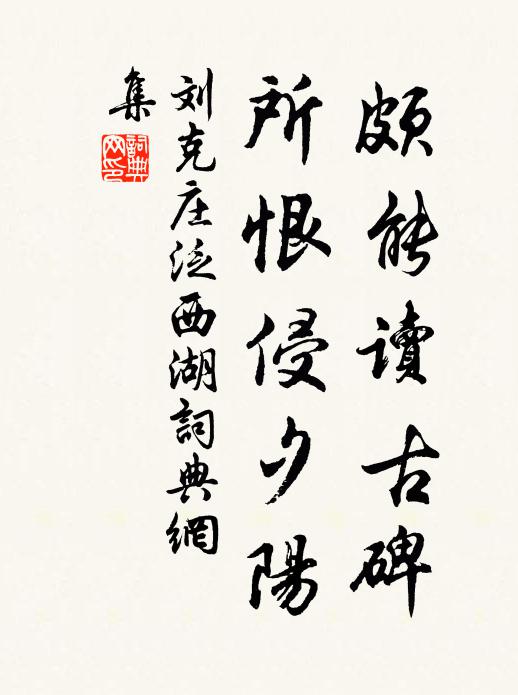 頗能讀古碑
所恨侵夕陽
刘克庄泛西湖詞典網
集
詞典
网印